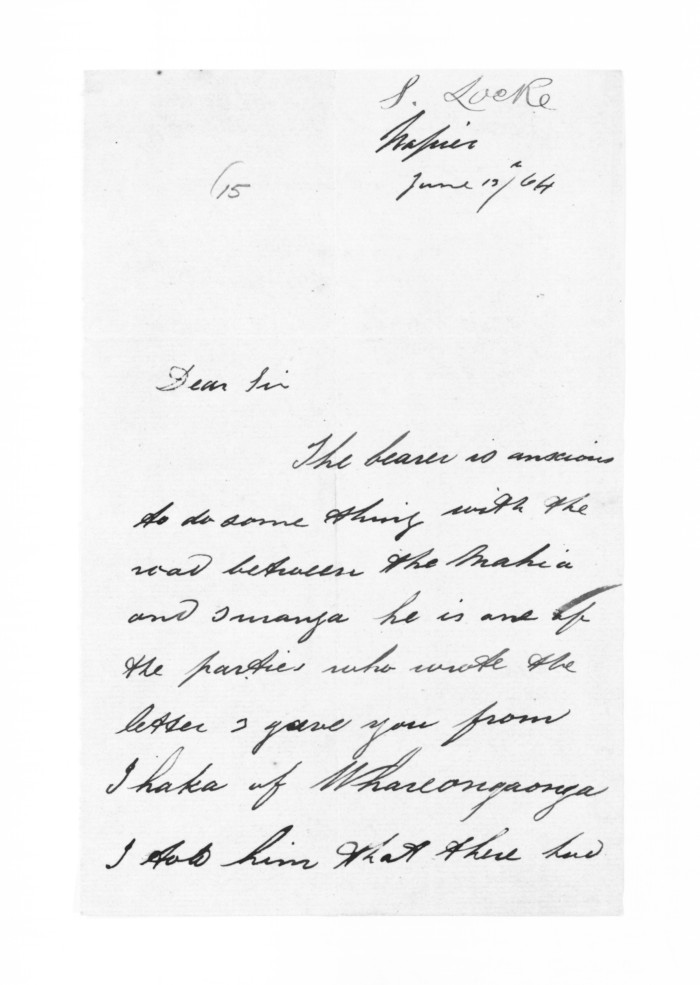 S. Locke
Napier
(15
June 13th/64
Dear Sir
The bearer is anxious
to do some thing with the
road between the Mahia
and Turanga he is one of
the parties who wrote the
letter I gave you from
Ihaka of Whareongaonga
I told him that there had